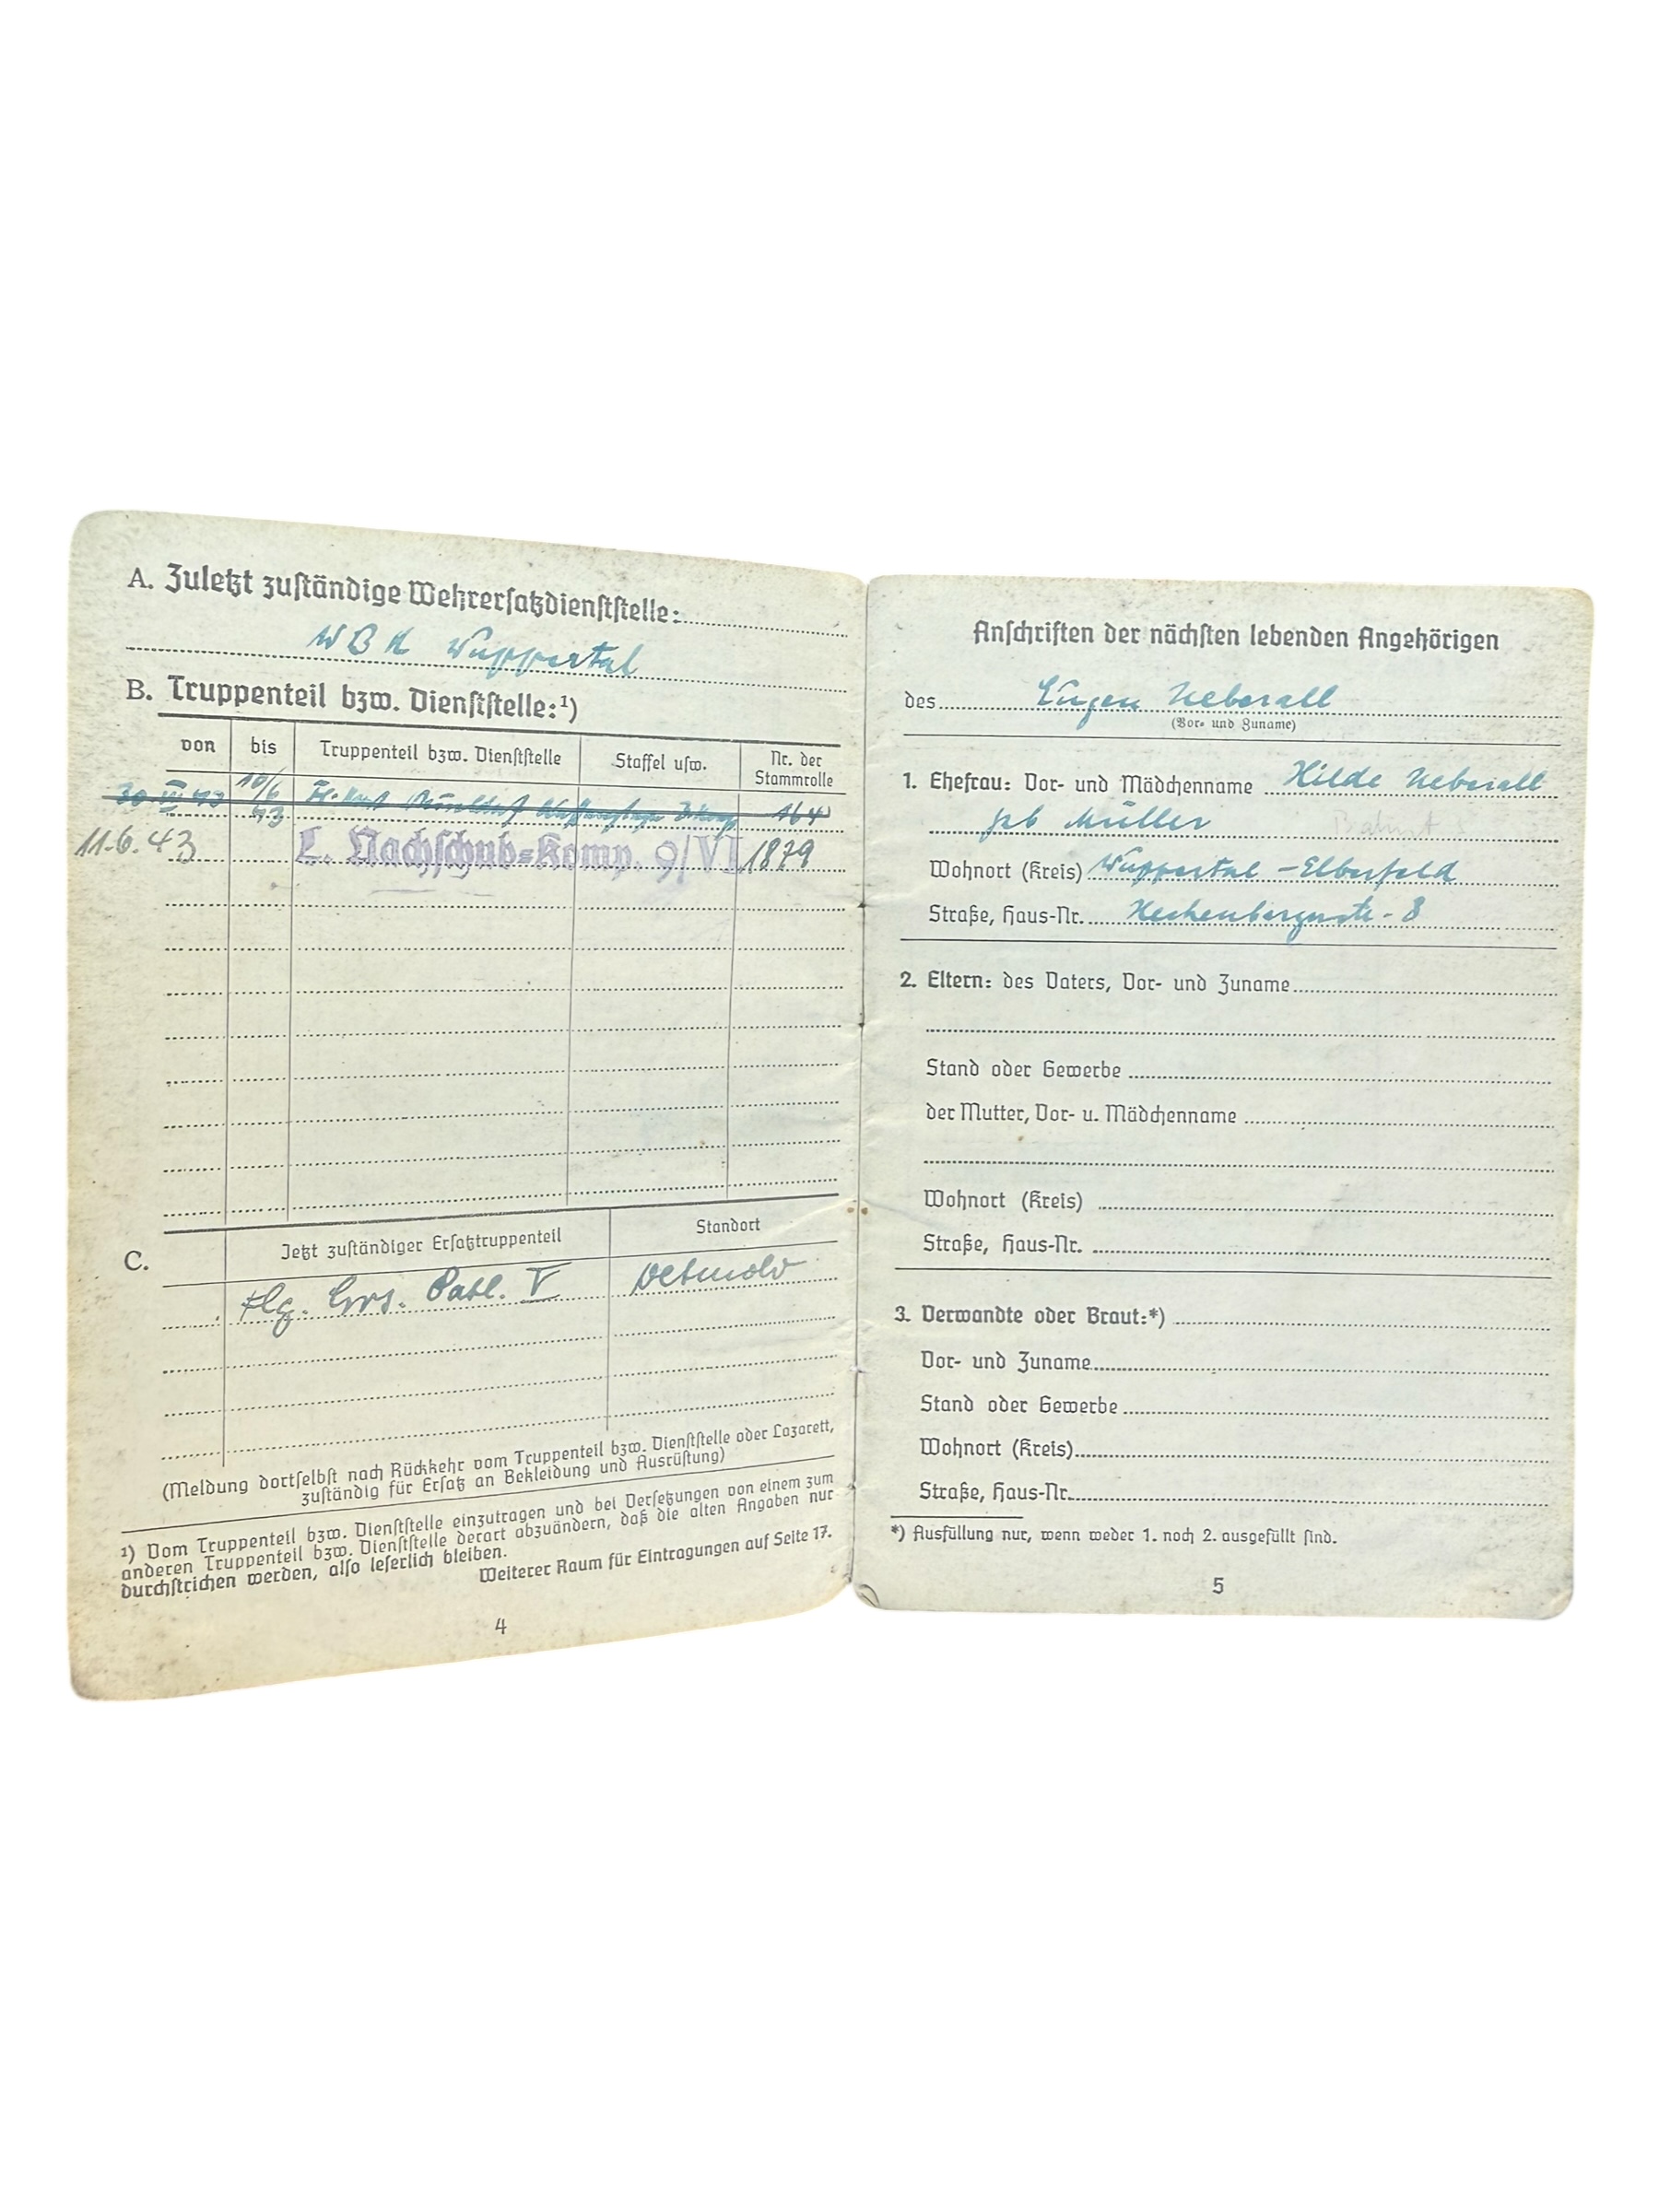 A. Zuletzt zuständige Wehrersatzdienststelle:
W B K Wuppertal
B. Truppenteil bzw. Dienststelle:¹)
von bis Truppenteil bzw. Dienststelle Staffel usw. Nr. der Stammrolle
10/6 43 164
11.6.43 L. Nachschub=Komp. 9/VI 1879
C. Jetzt zuständiger Ersatztruppenteil Standort
Flg. Ers. Batl. V Detmold
(Meldung dortselbst nach Rückkehr vom Truppenteil bzw. Dienststelle oder Lazarett,
zuständig für Ersatz an Bekleidung und Ausrüstung)
¹) Vom Truppenteil bzw. Dienststelle einzutragen und bei Versetzungen von einem zum
anderen Truppenteil bzw. Dienststelle derart abzuändern, daß die alten Angaben nur
durchstrichen werden, also leserlich bleiben.
Weiterer Raum für Eintragungen auf Seite 17.
4
Anschriften der nächsten lebenden Angehörigen
des Eugen Ueberall
(Vor- und Zuname)
1. Ehefrau: Vor- und Mädchenname Hilde Ueberall
geb Müller
Wohnort (Kreis) Wuppertal - Elberfeld
Straße, Haus-Nr. 8
2. Eltern: des Vaters, Vor- und Zuname
Stand oder Gewerbe
der Mutter, Vor- u. Mädchenname
Wohnort (Kreis)
Straße, Haus-Nr.
3. Verwandte oder Braut:*)
Vor- und Zuname
Stand oder Gewerbe
Wohnort (Kreis)
Straße, Haus-Nr.
*) Ausfüllung nur, wenn weder 1. noch 2. ausgefüllt sind.
5